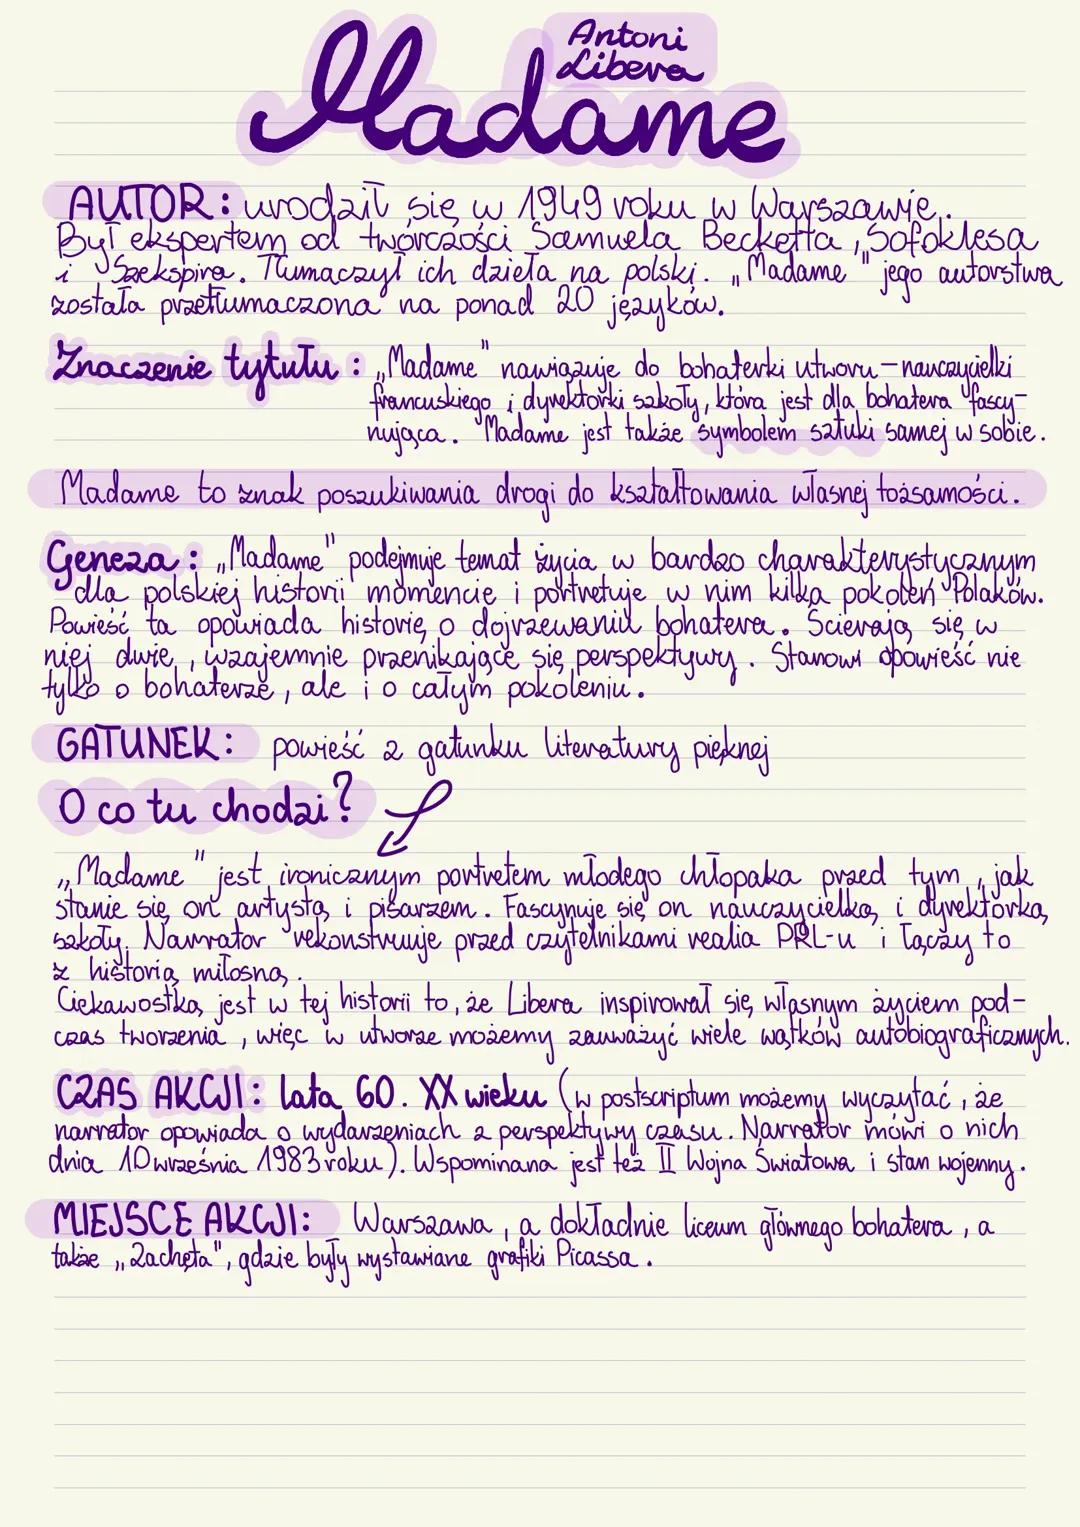 Antoni
Libera
Madame
AUTOR: urodził się w 1949 roku w Warszawie.
Był ekspertem od twórczości Samuela Becketta, Sofoklesa
i Szekspira. Tłumaczył ich dzieła na polski. „Madame" jego autorstwa
została przetłumaczona na ponad 20 języków.
Znaczenie tytułu: „Madame" nawiązuje do bohaterki utworu – nauczycielki
francuskiego i dyrektorki szkoły, która jest dla bohatera fascy-
nująca. Madame jest także symbolem sztuki samej w sobie.
Madame to znak poszukiwania drogi do kształtowania własnej tożsamości.
Geneza: „Madame" podejmuje temat życia w bardzo charakterystycznym
dla polskiej historii momencie i portretuje w nim kilka pokoleń Polaków.
Powieść ta opowiada historię o dojrzewaniu bohatera. Ścierają się w
niej dwie, wzajemnie przenikające się perspektywy. Stanowi opowieść nie
tylko o bohaterze, ale i o całym pokoleniu.
GATUNEK: powieść z gatunku literatury pięknej
O co tu chodzi?
„Madame" jest ironicznym portretem młodego chłopaka przed tym, jak
stanie się on artystą i pisarzem. Fascynuje się on nauczycielką i dyrektorką
szkoły. Narrator rekonstruuje przed czytelnikami realia PRL-u i łączy to
z historią miłosną.
Ciekawostką jest w tej historii to, że Libera inspirował się własnym życiem pod-
czas tworzenia, więc w utworze możemy zauważyć wiele wątków autobiograficznych.
CZAS AKCJI: lata 60. XX wieku (w postscriptum możemy wyczytać, że
narrator opowiada o wydarzeniach z perspektywy czasu. Narrator mówi o nich
dnia 10 września 1983 roku). Wspominana jest też II Wojna Światowa i stan wojenny.
MIEJSCE AKCJI: Warszawa, a dokładnie liceum głównego bohatera, a
także „Zachęta", gdzie były wystawiane grafiki Picassa.